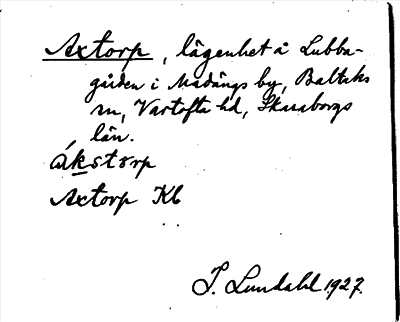 Axtorp, lägenhet å Lubba-
gården i Mådängs by, Baltaks
sn, Vartofta hd, Skaraborgs
län.
ákstorp
Axtorp Kb
I. Lundahl 1927.